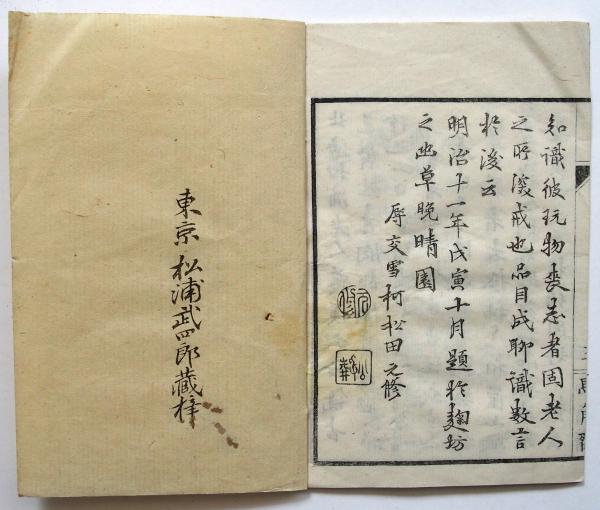 知識彼玩物喪志者固老人
之所深戒也品目成聊識数言
於後云
明治十一年戊寅十月題於麹坊
之幽草晩晴園
辱交雪柯松田元修
東京 松浦武四郎蔵梓